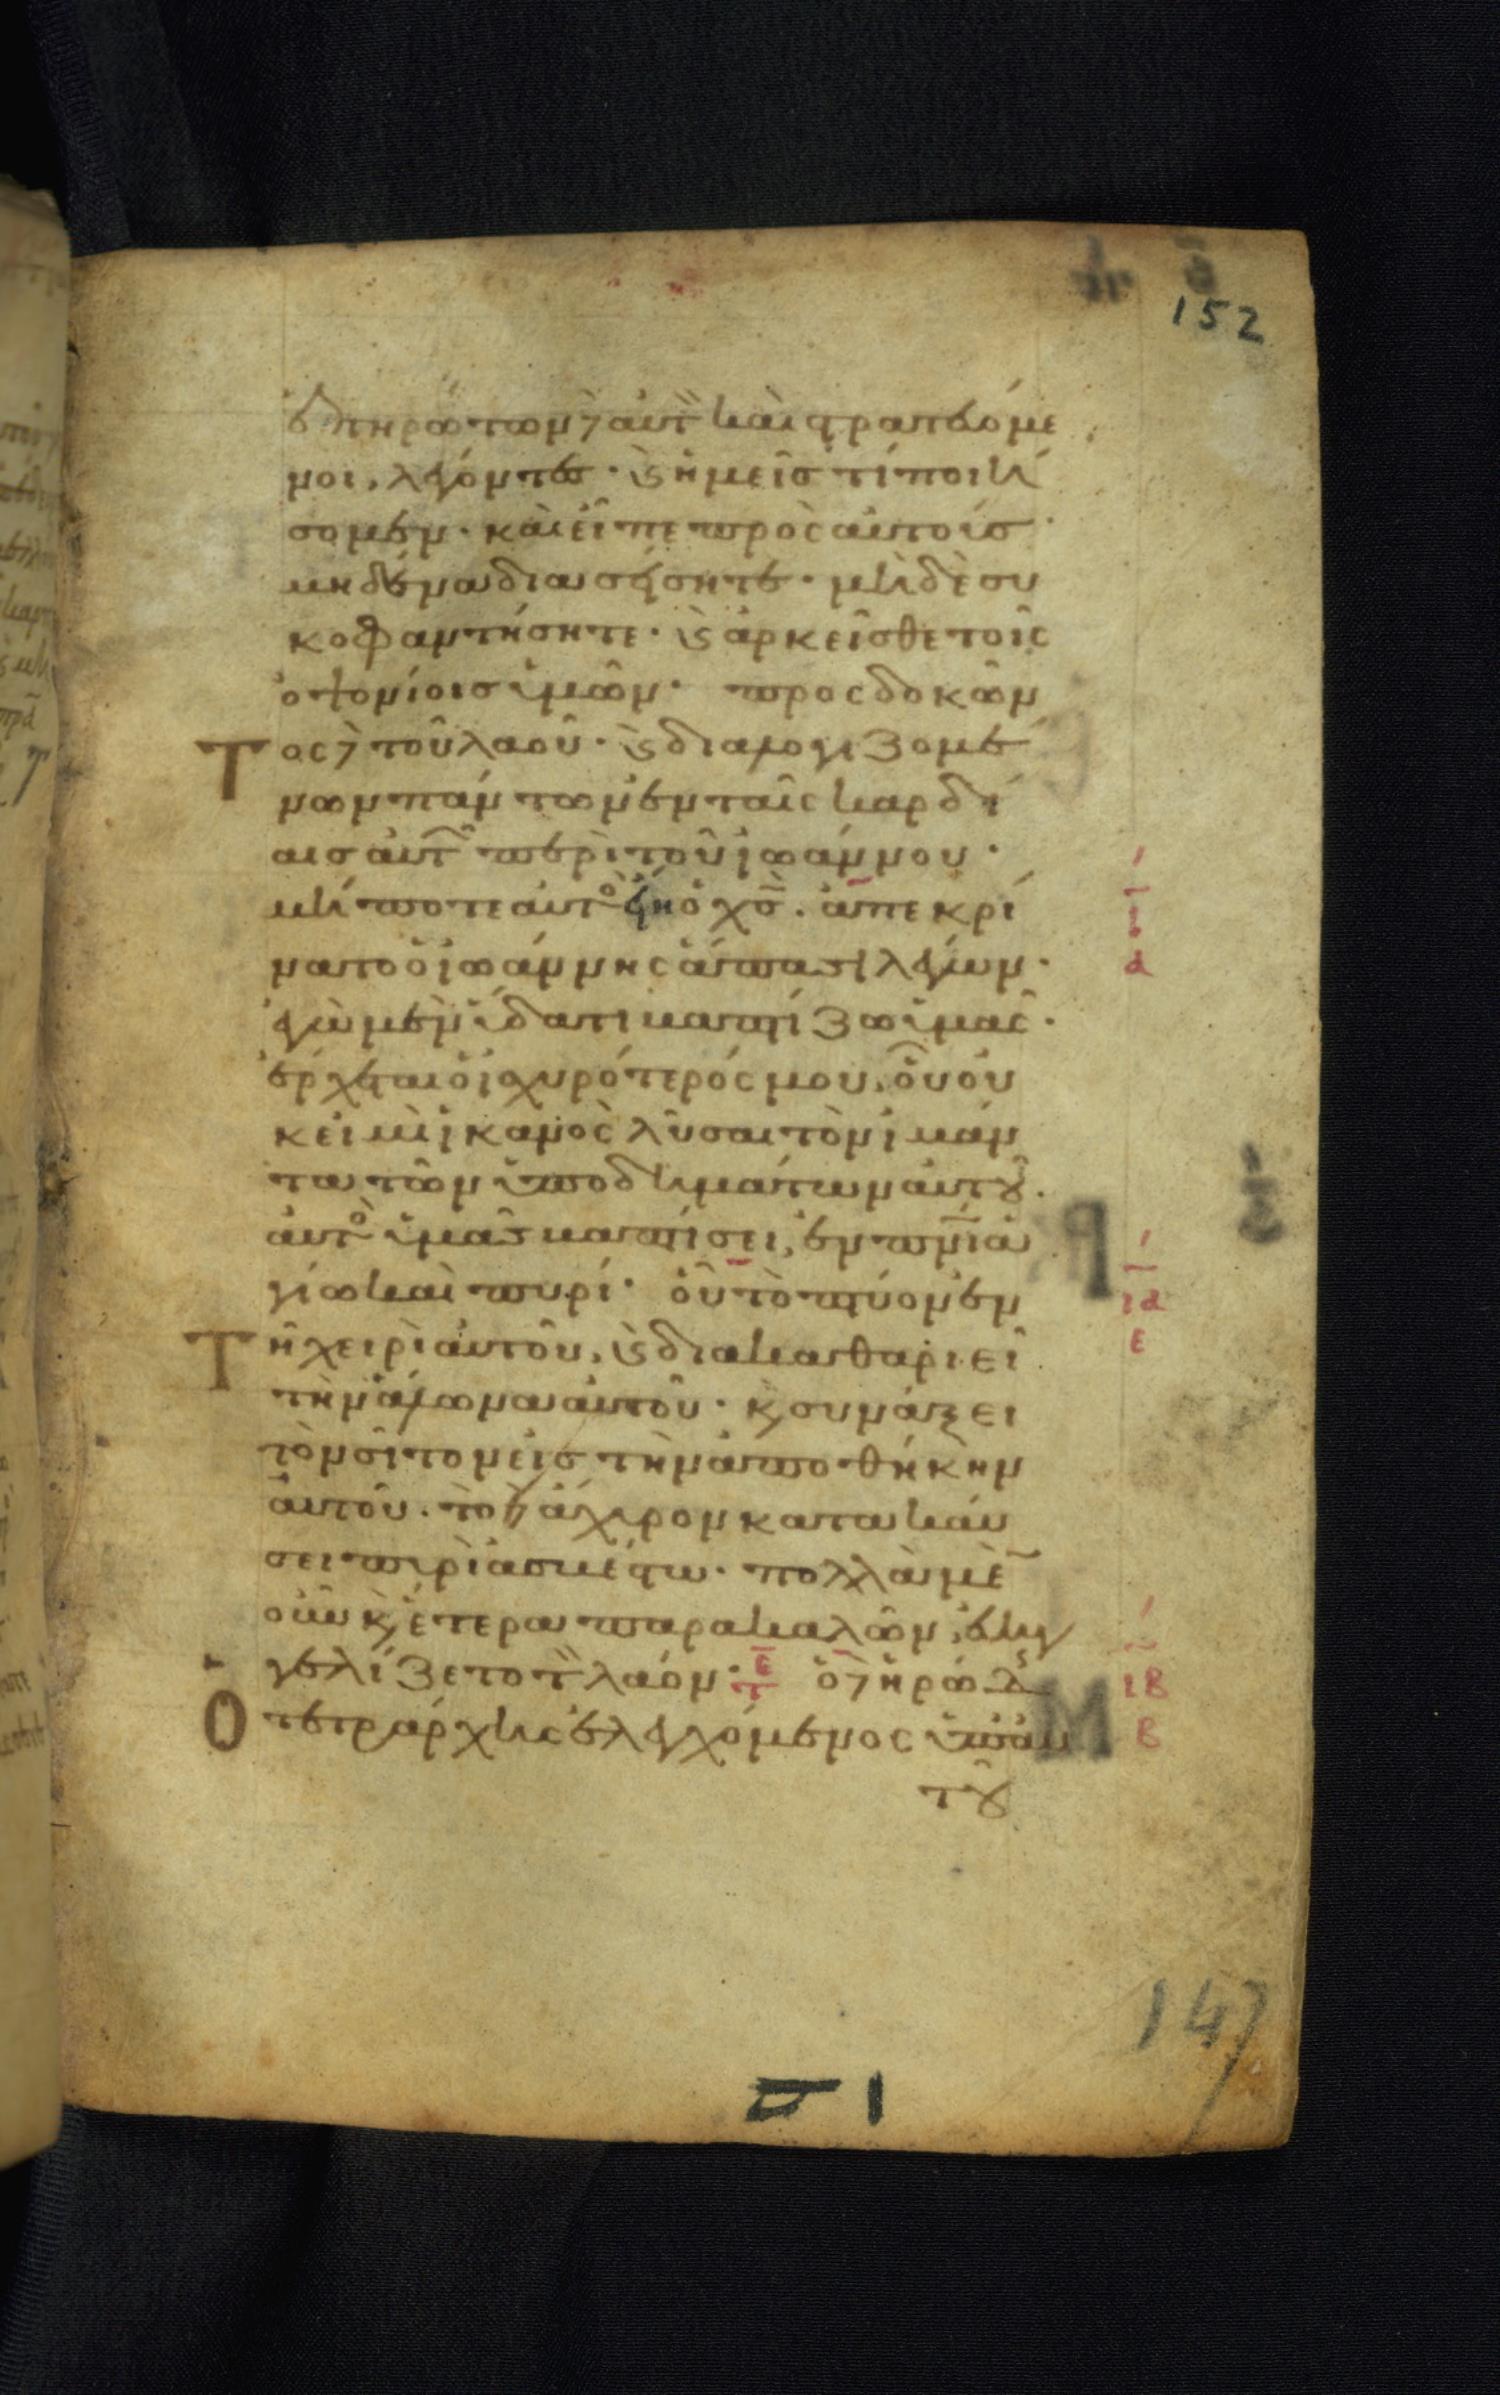 152
ἐπηρώτων δὲ αὐτὸν καὶ στρατευόμε
νοι, λέγοντες· καὶ ἡμεῖς τί ποιή
σομεν· καὶ εἶπε πρὸς αὐτούς·
μηδένα διασείσητε· μηδὲ συ
κοφαντήσητε· καὶ ἀρκεῖσθε τοῖς
ὀψονίοις ὑμῶν· προσδοκῶν
τος δὲ τοῦ λαοῦ· καὶ διαλογιζομέ
νων πάντων ἐν ταῖς καρδί
αις αὐτῶν περὶ τοῦ ἰωάννου·
μήποτε αὐτὸς εἴη ὁ χς̄. ἀπεκρί
νατο ὁ ἰωάννης ἅπασι λέγων·
ἐγὼ μὲν ὕδατι βαπτίζω ὑμᾶς·
ἔρχεται ὁ ἰσχυρότερός μου, οὗ οὐ
κ εἰμὶ ἱκανὸς λῦσαι τὸν ἱμάν
τα τῶν ὑποδημάτων αὐτοῦ.
αὐτὸς ὑμᾶς βαπτίσει, ἐν πνῑ ἁ
γίω καὶ πυρί· οὗ τὸ πτύον ἐν
τῆ χειρὶ αὐτοῦ, καὶ διακαθαριεῖ
τὴν ἅλωνα αὐτοῦ· καὶ συνάξει
τὸν σῖτον εἰς τὴν ἀποθήκην
αὐτοῦ. τὸ δὲ ἄχυρον κατακαύ
σει πυρὶ ἀσβέστω· πολλὰ μὲν
οὖν καὶ ἕτερα παρακαλῶν, εὐηγ
γελίζετο τὸν λαόν· ὁ δὲ ἡρώδης
ὁ τετράρχης ἐλεγχόμενος ὑπ' αὐ
τοῦ
ι
α
ια
ε
ιβ
β
147